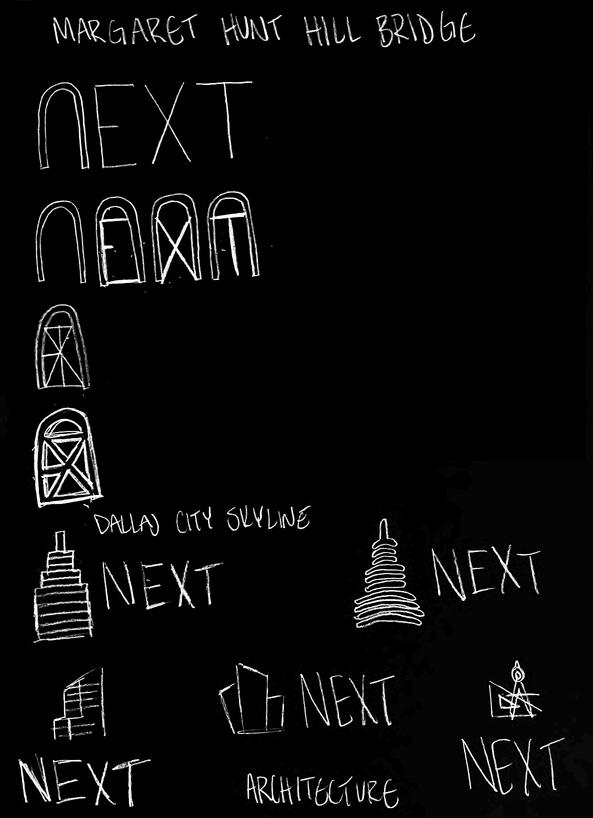 MARGARET HUNT HILL BRIDGE
NEXT
NEXT
DALLAS CITY SKYLINE
NEXT
NEXT
NEXT
NEXT
NEXT
ARCHITECTURE